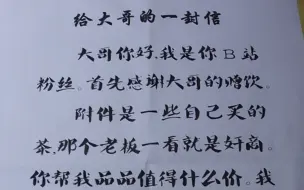 给大哥的一封信
大哥你好,我是你B站
粉丝。首先感谢大哥的赠饮。
附件是一些自己买的
茶,那个老板一看就是奸商。
你帮我品品值得什么价。我